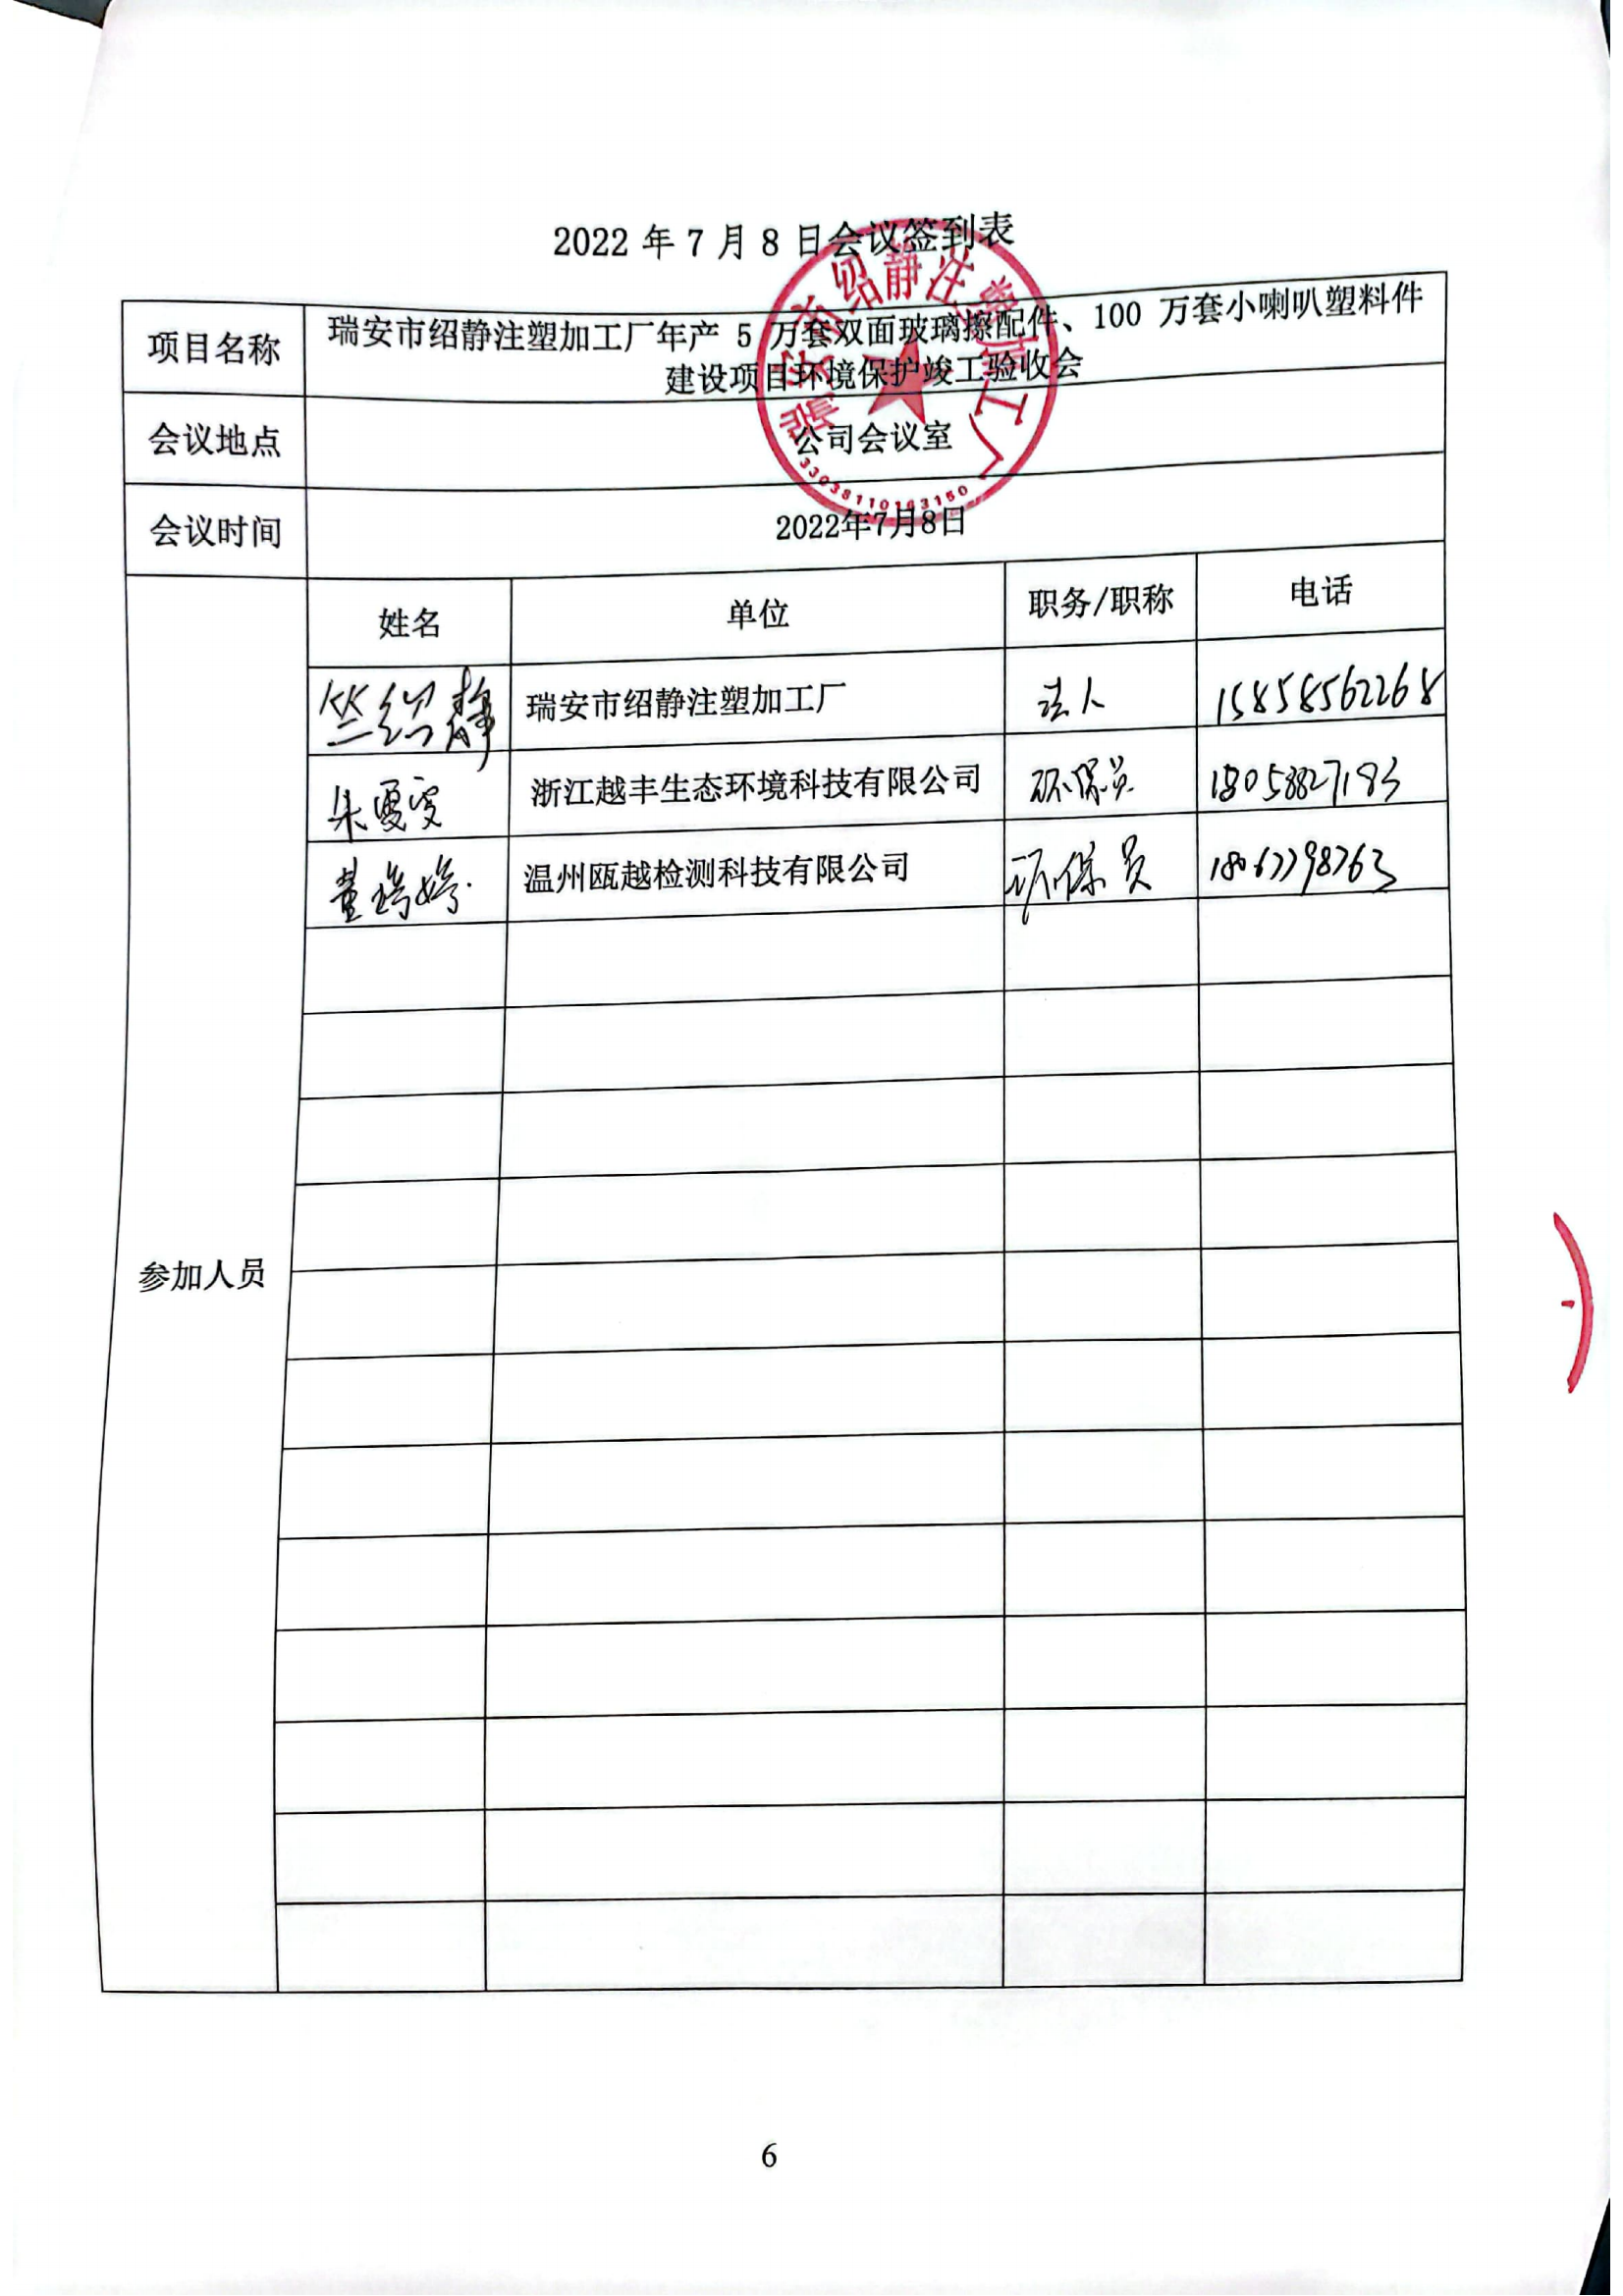 2022 年 7 月 8 日会议签到表
项目名称
瑞安市绍静注塑加工厂年产 5 万套双面玻璃擦配件、100 万套小喇叭塑料件
建设项目环境保护竣工验收会
会议地点
公司会议室
会议时间
2022年7月8日
瑞安市绍静注塑加工厂
33038110163150
参加人员
姓名 单位 职务/职称 电话
竺绍静 瑞安市绍静注塑加工厂 法人 15858562268
朱 浙江越丰生态环境科技有限公司 环保员 18058827183
董 婷 温州瓯越检测科技有限公司 环保员 18067798763
6